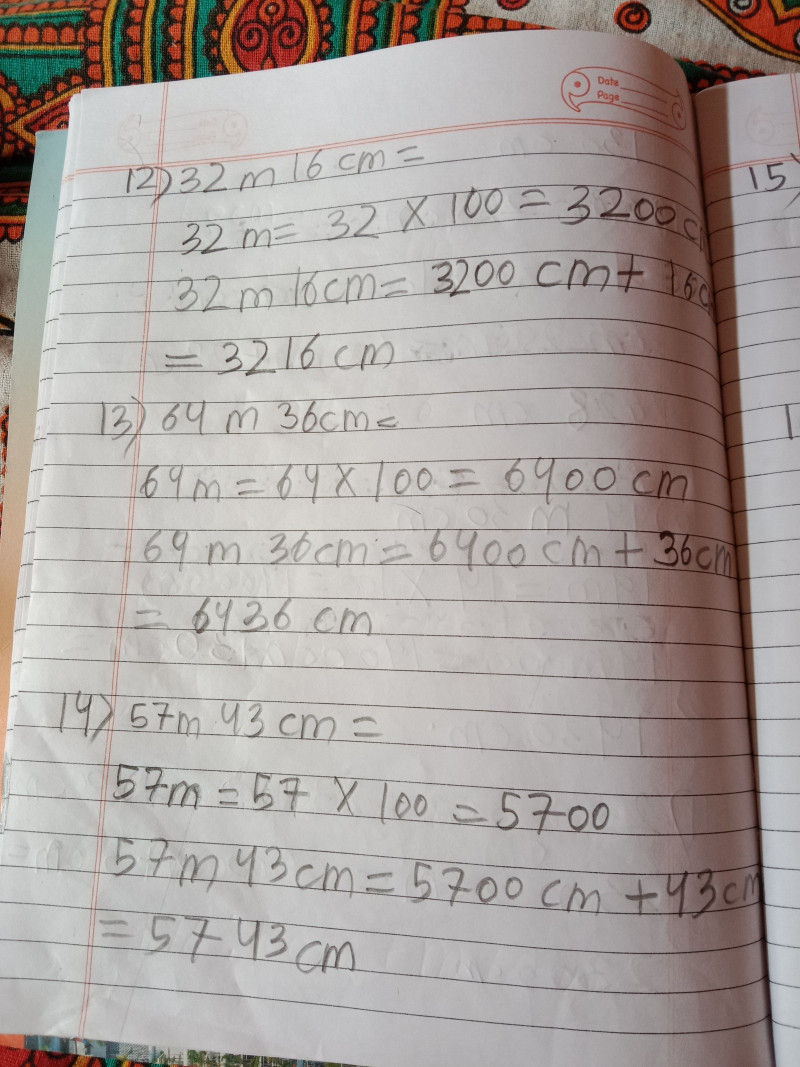 Date
Page
12) 32 m 16 cm =
32 m = 32 X 100 = 3200 c
32 m 16 cm = 3200 cm + 16 c
= 3216 cm
13) 64 m 36 cm =
64 m = 64 X 100 = 6400 cm
64 m 36 cm = 6400 cm + 36 cm
= 6436 cm
14) 57m 43 cm =
57m = 57 X 100 = 5700
57 m 43 cm = 5700 cm + 43 cm
= 5743 cm
15)